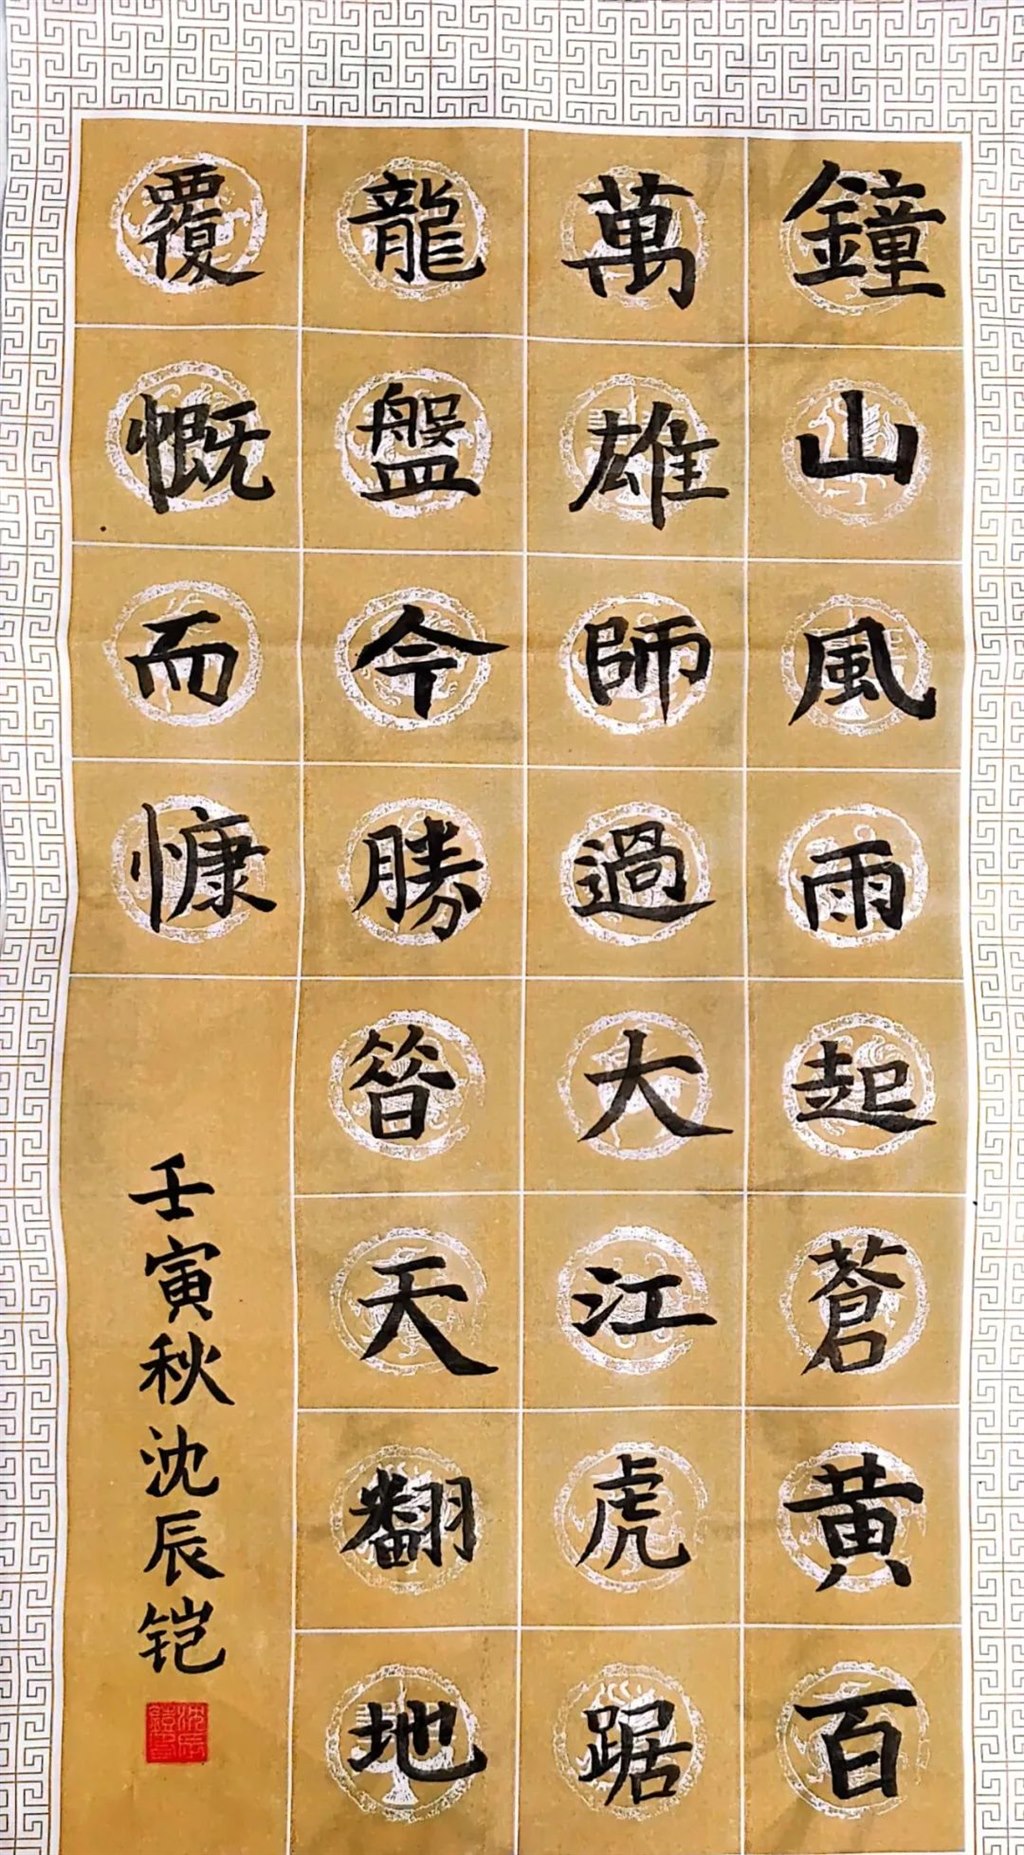 鐘山風雨起蒼黄百
萬雄師過大江虎踞
龍盤今勝昝天翻地
覆慨而慷
壬寅秋沈辰铠